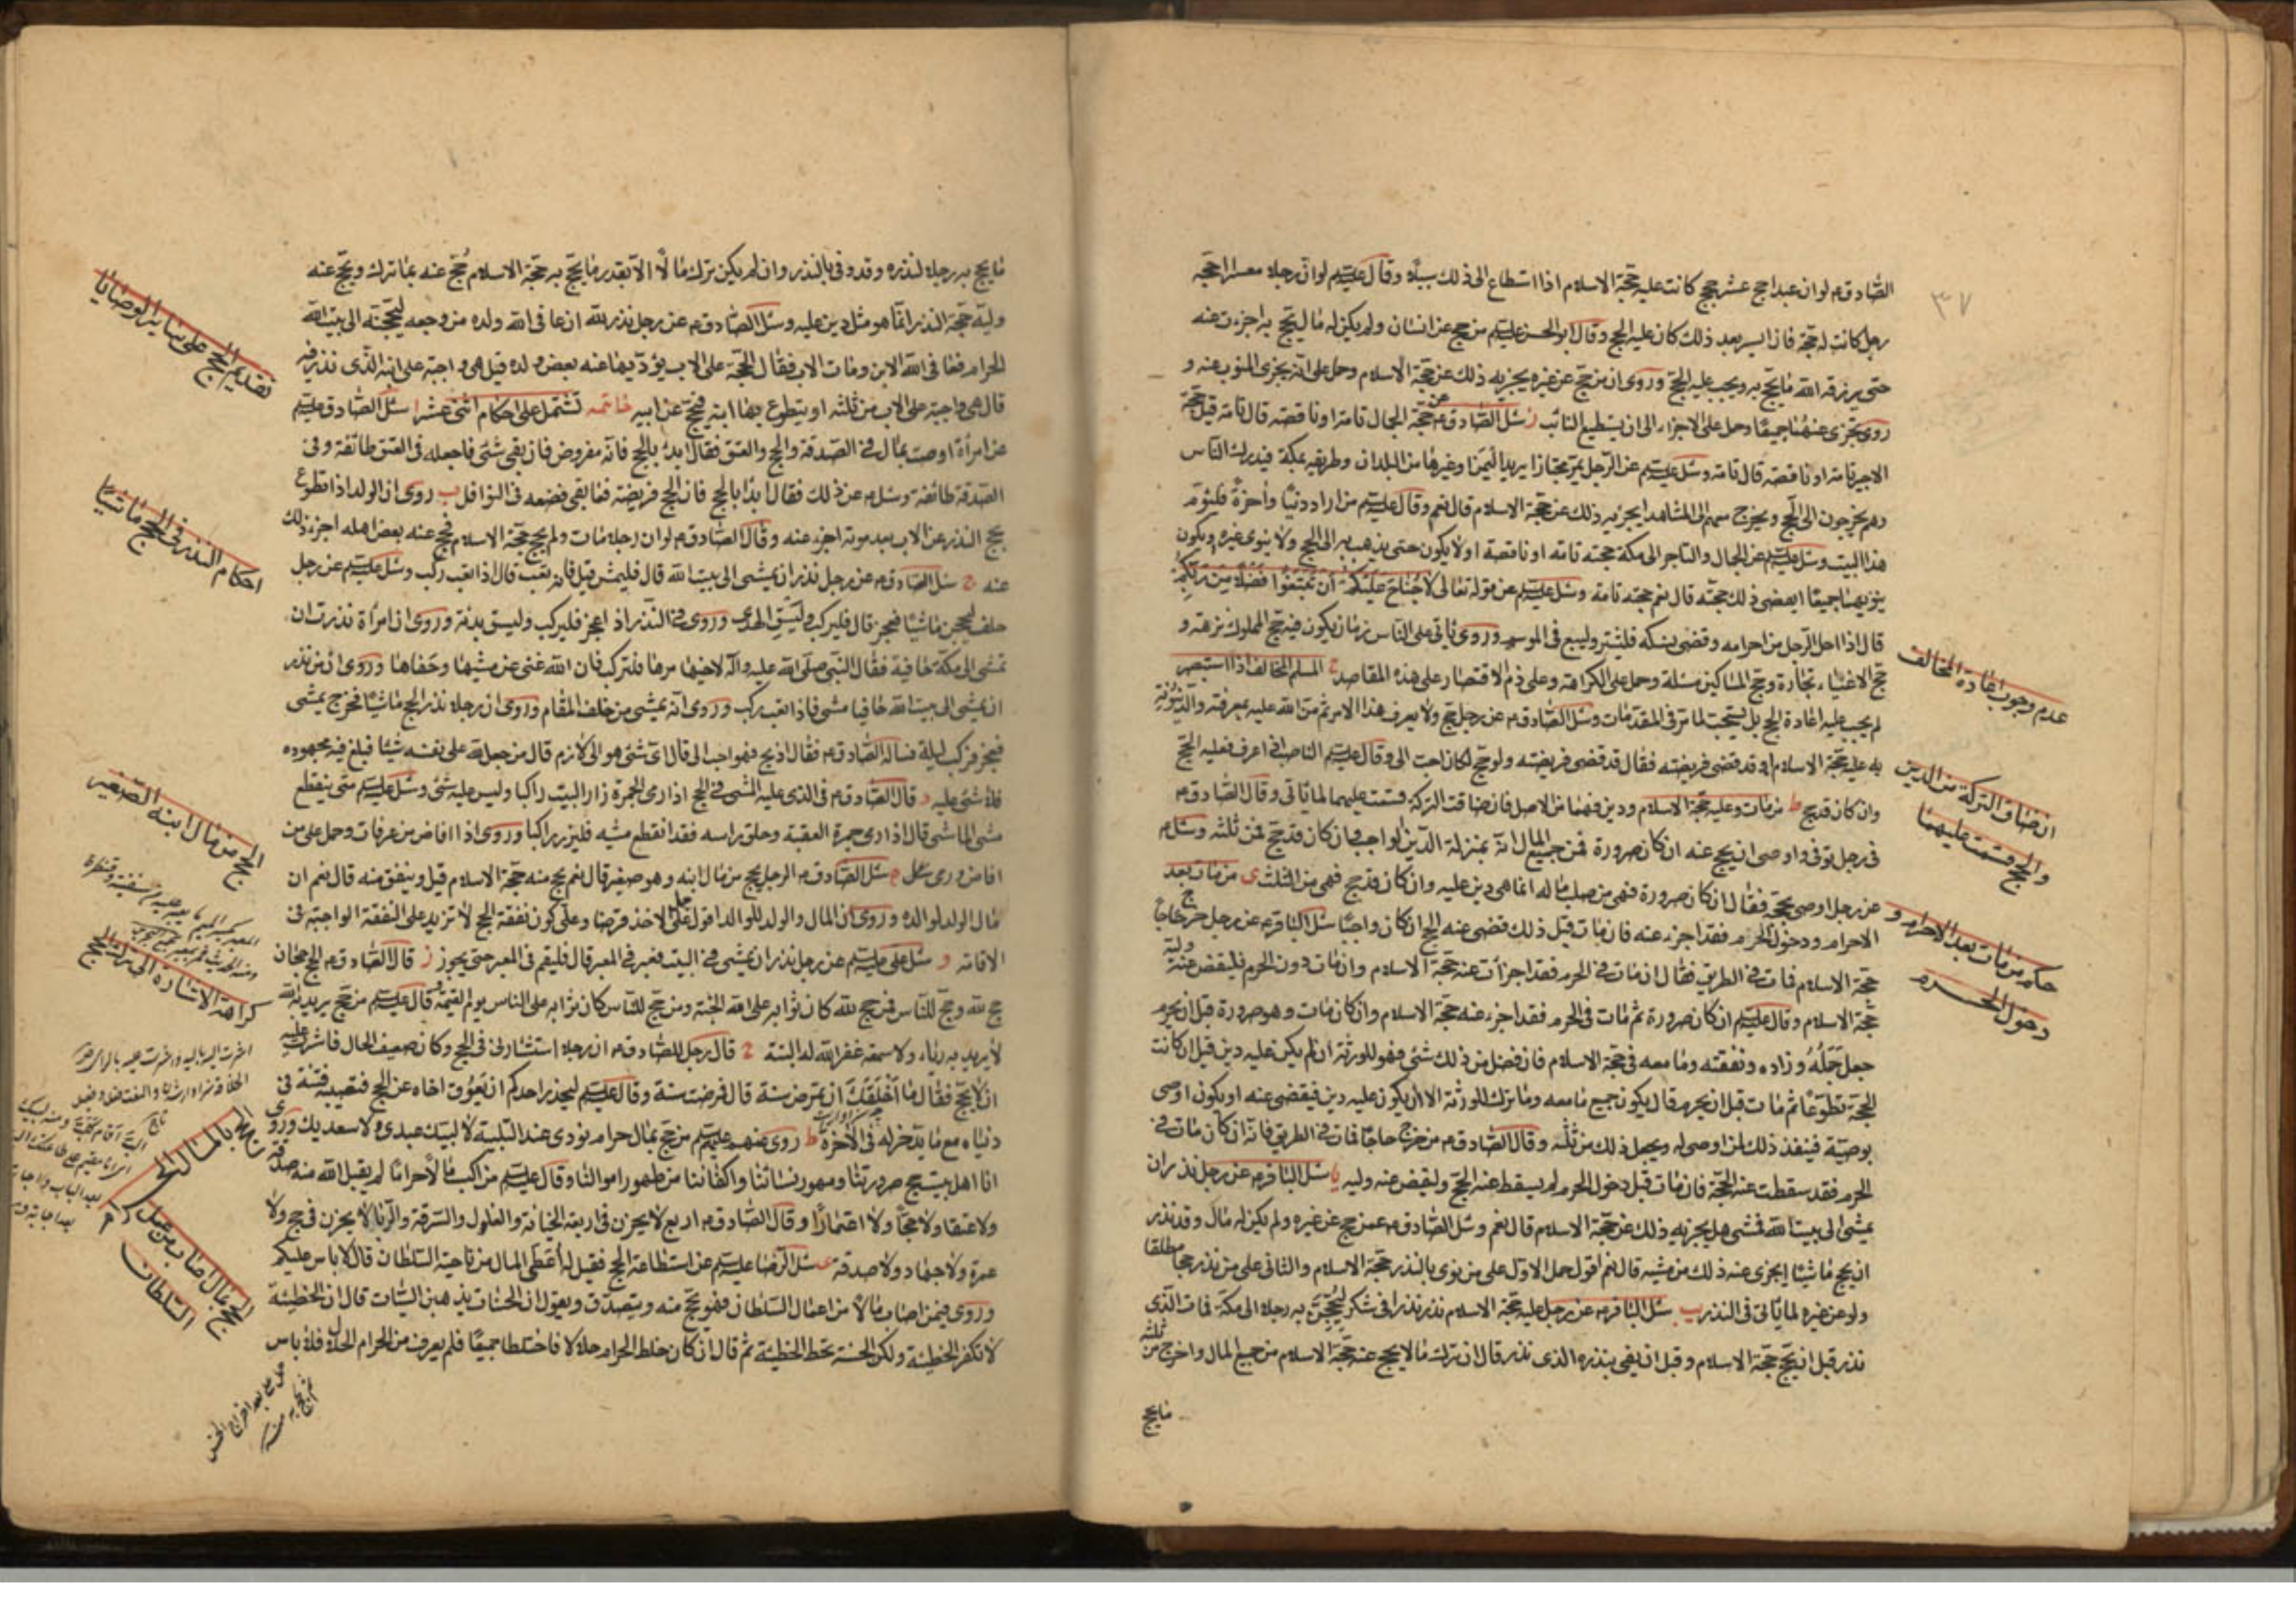 ٣٧
الصادق ع لو ان عبدا حج عشر حجج كانت عليه حجة الاسلام اذا استطاع الى ذلك سبيلا وقال عليتم لو ان رجلا معسرا احجه
رجل كانت له حجة فان ايسر بعد ذلك كان عليه الحج وقال ابو الحسن عليتم من حج عن انسان ولم يكن له مال يحج به اجزءت عنه
حتى يرزقه الله ما يحج به ويجب عليه الحج وروى ان من حج عن غيره يجزيه ذلك عن حجة الاسلام وحمل على انه يجزى المنوب عنه و
روى تجزى عنهما جميعا وحمل على الاجزاء الى ان يستطيع النائب ز سئل الصادق ع عن حجة الجمال تامة او ناقصة قال تامة قيل حجة
الاجير تامة او ناقصة قال تامة وسئل عليتم عن الرجل يمر مجتازا يريد اليمن او غيرها من البلدان وطريقه بمكة فيدرك الناس
وهم يخرجون الى الحج ويخرج معهم الى المشاهد ايجزيه ذلك عن حجة الاسلام قال نعم وقال عليتم من اراد دنيا واخرة فليؤم
هذا البيت وسئل عليتم عن الجمال والتاجر الى مكة حجته تامة او ناقصة او لا يكون حتى يذهب به الى الحج ولا ينوى غيره او يكون
ينويهما جميعا ايقضى ذلك حجته قال نعم حجته تامة وسئل عليتم عن قوله تعالى لا جناح عليكم ان تبتغوا فضلا من ربكم
قال اذا احل الرجل من احرامه وقضى نسكه فليشتر وليبع فى الموسم وروى ياتى على الناس زمان يكون فيه حج الملوك نزهة و
حج الاغنياء تجارة وحج المساكين مسئلة وحمل على الكراهة وعلى ذم الاقتصار على هذه المقاصد ح المسلم المخالف اذا استبصر
لم يجب عليه اعادة الحج بل يستحب لما مر فى المقدمات وسئل الصادق ع عن رجل حج ولا يعرف هذا الامر ثم من الله عليه بمعرفته والدينونة
به عليه حجة الاسلام او قد قضى فريضته فقال قد قضى فريضته ولو حج لكان احب الى وقال عليتم الناصب اذا عرف فعليه الحج
وان كان قد حج ط من مات وعليه حجة الاسلام ودين فهما من الاصل فان ضاقت التركة قسمت عليهما لما ياتى وقال الصادق ع
فى رجل توفى واوصى ان يحج عنه ان كان صرورة فمن جميع المال انه بمنزلة الدين الواجب وان كان قد حج فمن ثلثه وسئل ع
عن رجل اوصى بحجة فقال ان كان صرورة فهى من صلب ماله انما هى دين عليه وان كان قد حج فهى من الثلث ى من مات بعد
الاحرام ودخول الحرم فقد اجزء عنه فان مات قبل ذلك قضى عنه الحج ان كان واجبا سئل الباقر ع عن رجل خرج حاجا
حجة الاسلام فمات فى الطريق فقال ان مات فى الحرم فقد اجزأت عنه حجة الاسلام وان مات دون الحرم فليقض عنه وليه
حجة الاسلام وقال عليتم ان كان صرورة ثم مات فى الحرم فقد اجزء عنه حجة الاسلام وان كان مات وهو صرورة قبل ان يحرم
جعل جمله وزاده ونفقته وما معه فى حجة الاسلام فان فضل من ذلك شئ فهو للورثة ان لم يكن عليه دين قيل ان كانت
الحجة تطوعا ثم مات قبل ان يحرم قال يكون جميع ما معه وما ترك للورثة الا ان يكون عليه دين فيقضى عنه او يكون اوصى
بوصية فينفذ ذلك لمن اوصى له ويجعل ذلك من ثلثه وقال الصادق ع من خرج حاجا فمات فى الطريق فانه ان كان مات فى
الحرم فقد سقطت عنه الحجة فان مات قبل دخول الحرم لم يسقط عنه الحج وليقض عنه وليه يا سئل الباقر ع عن رجل نذر ان
يمشى الى بيت الله فمشى هل يجزيه ذلك عن حجة الاسلام قال نعم وسئل الصادق ع عمن حج عن غيره ولم يكن له مال وقد نذر
ان يحج ماشيا ايجزى عنه ذلك من مشيه قال نعم اقول حمل الاول على من نوى بالنذر حجة الاسلام والثانى على من نذر حجا مطلقا
ولو عن غيره لما ياتى فى النذر يب سئل الباقر ع عن رجل عليه حجة الاسلام نذر نذرا فى شكر ليحجن به رجلا الى مكة فمات الذى
نذر قبل ان يحج حجة الاسلام وقبل ان يفى بنذره الذى نذر قال ان ترك مالا يحج عنه حجة الاسلام من جميع المال واخرج من ثلثه
ما يحج
عدم وجوب اعادة المخالف
ان ضاق التركة من الدين
والحج قسمت عليهما
حكم من مات بعد الاحرام و
دخول الحرم
ما يحج به رجلا لنذره وقد وفى بالنذر وان لم يكن ترك مالا الا بقدر ما يحج به حجة الاسلام حج عنه بما ترك ويحج عنه
وليه حجة النذر انما هو مثل دين عليه وسئل الصادق ع عن رجل نذر لله ان عافى الله ولده من وجعه ليحجنه الى بيت الله
الحرام فعافى الله الابن ومات الاب فقال الحجة على الاب يؤديها عنه بعض ولده قيل هى واجبة على ابنه الذى نذر فيه
قال هى واجبة على الاب من ثلثه او يتطوع بها ابنه فيحج عن ابيه خاتمه تشتمل على احكام اثنى عشر ا سئل الصادق عليتم
عن امرأة اوصت بمال فى الصدقة والحج والعتق فقال ابدء بالحج فانه مفروض فان بقى شئ فاجعله فى العتق طائفة وفى
الصدقة طائفة وسئل ع عن ذلك فقال ابدأ بالحج فان الحج فريضة فما بقى فضعه فى النوافل ب روى ان الولد اذا تطوع
بحج النذر عن الاب بعد موته اجزء عنه وقال الصادق ع لو ان رجلا مات ولم يحج حجة الاسلام فحج عنه بعض اهله اجزء ذلك
عنه ج سئل الصادق ع عن رجل نذر ان يمشى الى بيت الله قال فليمش قيل فانه تعب قال اذا تعب ركب وسئل عليتم عن رجل
حلف ليحجن ماشيا فعجز قال فليركب وليسق الهدى وروى فى النذر اذا عجز فليركب وليسق بدنة وروى ان امرأة نذرت ان
تمشى الى مكة حافية فقال النبى صلى الله عليه وآله لاخيها مرها فلتركب فان الله غنى عن مشيها وحفاها وروى ان من نذر
ان يمشى الى بيت الله حافيا مشى فاذا تعب ركب وروى انه يمشى من خلف المقام وروى ان رجلا نذر الحج ماشيا فخرج يمشى
فعجز فركب ليلة فسال الصادق ع فقال اذبح فهو احب الى قال اى شئ هو الى لازم قال من جعل لله على نفسه شيئا فبلغ فيه مجهوده
فلا شئ عليه د قال الصادق ع فى الذى عليه المشى فى الحج اذا رمى الجمرة زار البيت راكبا وليس عليه شئ وسئل عليتم متى ينقطع
مشى الماشى قال اذا رمى جمرة العقبة وحلق راسه فقد انقطع مشيه فليزر راكبا وروى اذا افاض من عرفات وحمل على من
افاض ورمى ه سئل الصادق ع الرجل يحج من مال ابنه وهو صغير قال نعم يحج منه حجة الاسلام قيل وينفق منه قال نعم ان
مال الولد لوالده وروى ان المال والولد للوالد اقول حمل على الاخذ قرضا وعلى كون نفقة الحج لا تزيد على النفقة الواجبة فى
الاقامة و سئل على عليتم عن رجل نذر ان يمشى فى البيت فعبر فى المعبر قال فليقم فى المعبر حتى يجوز ز قال الصادق ع الحج حجان
حج لله وحج للناس فمن حج لله كان ثوابه على الله الجنة ومن حج للناس كان ثوابه على الناس يوم القيمة وقال عليتم من حج يريد به الله
لا يريد به رياء ولا سمعة غفر الله له البتة ح قال رجل للصادق ع ان رجلا استشارنى فى الحج وكان ضعيف الحال فاشرت عليه
ان لا يحج فقال ما اخلقك ان تمرض سنة قال فمرضت سنة وقال عليتم ليحذر احدكم ان يعوق اخاه عن الحج فتصيبه فتنة فى
دنياه مع ما يدخر له فى الآخرة ط روى عنهم عليهم من حج بمال حرام نودى عند التلبية لا لبيك عبدى ولا سعديك وروى
انا اهل بيت حج صرورتنا ومهور نسائنا واكفاننا من طهور اموالنا وقال عليتم من اكتسب مالا حراما لم يقبل الله منه صدقة
ولا عتقا ولا حجا ولا اعتمارا وقال الصادق ع اربع لا يجزن فى اربعة الخيانة والغلول والسرقة والربا لا يجزن فى حج ولا
عمرة ولا جهاد ولا صدقة ى سئل الرضا عليتم عن استطاعة الحج فقيل له أعطى المال من ناحية السلطان قال لا باس عليكم
وروى فيمن اصاب مالا من اعمال السلطان فهو يحج منه ويتصدق ويقول ان الحسنات يذهبن السيئات قال ان الخطيئة
لا تكفر الخطيئة ولكن الحسنة تحط الخطيئة ثم قال ان كان خلط الحرام حلالا فاختلطا جميعا فلم يعرف من الحرام الحلال فلا باس
تقديم الحج على ساير الوصايا
احكام النذر فى الحج ماشيا
الحج من مال ابنه الصغير
كراهة الاشارة الى ترك الحج
الحج بمال اصاب من عمل
السلطان